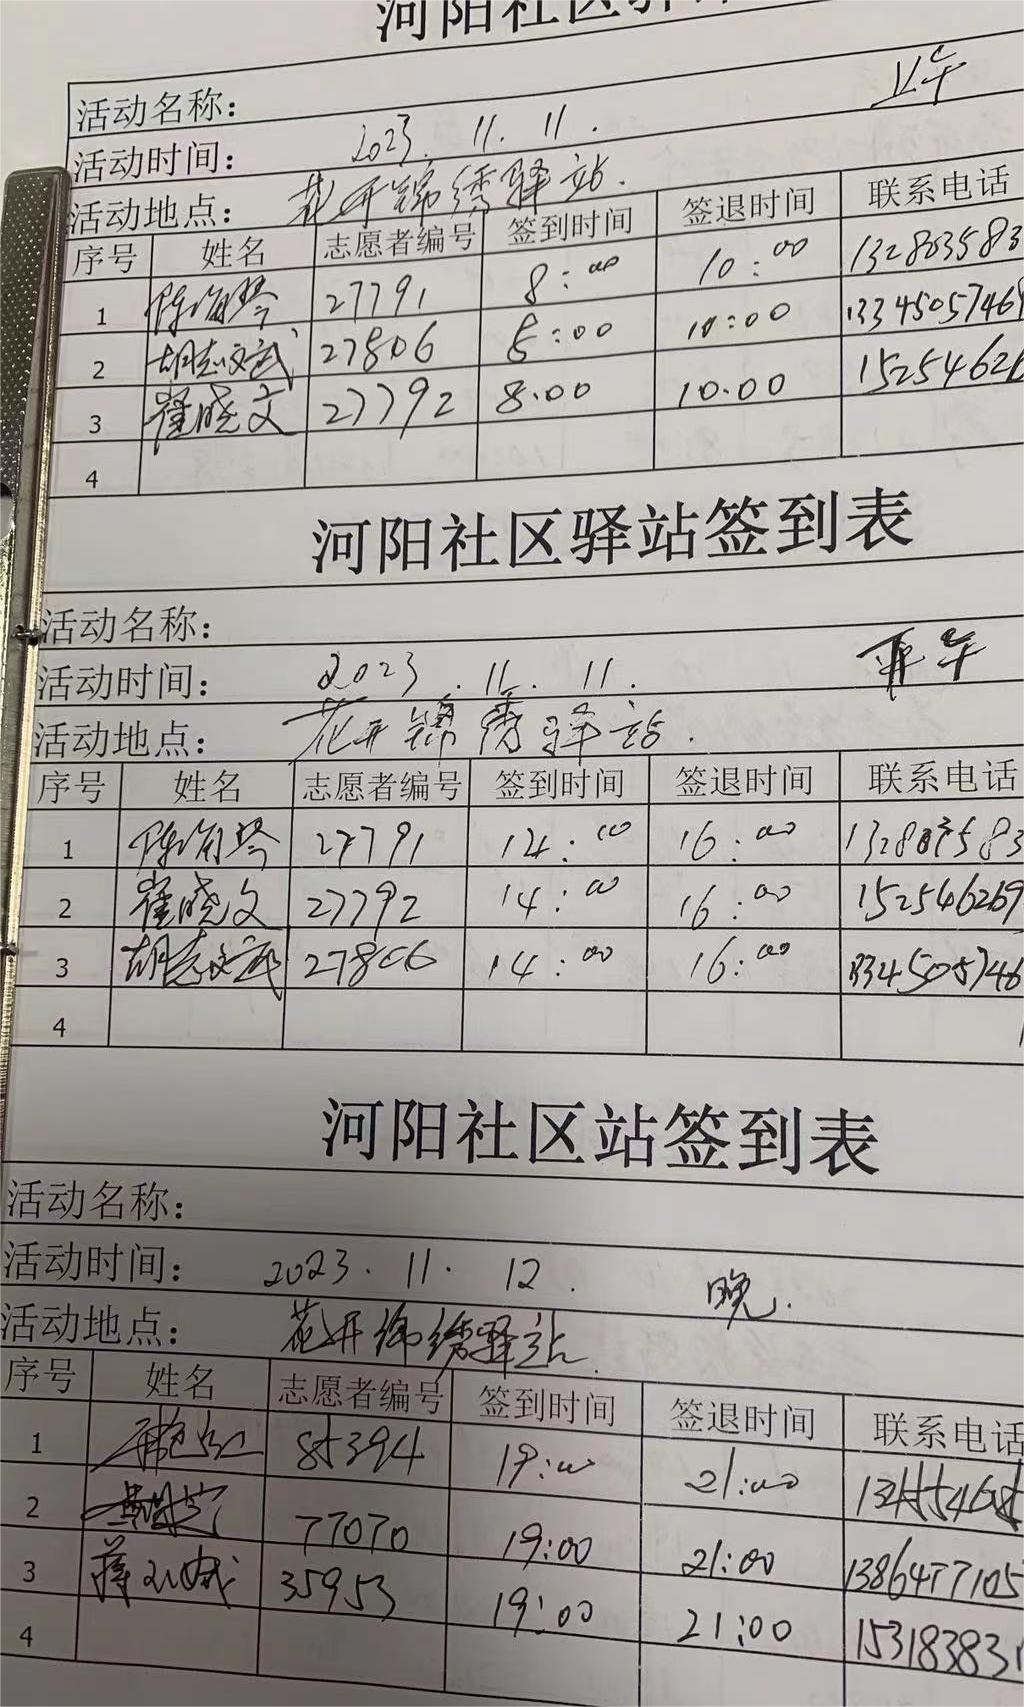 河阳社区驿
活动名称：
活动时间： 2023. 11. 11. 上午
活动地点： 花开锦绣驿站.
序号 姓名 志愿者编号 签到时间 签退时间 联系电话
1 27791 8:00 10:00 132803583
2 胡志斌 27806 8:00 10:00 13345057469
3 崔晓文 27792 8.00 10.00 15254626
4
河阳社区驿站签到表
活动名称：
活动时间： 2023. 11. 11.
活动地点： 花开锦绣驿站.
序号 姓名 志愿者编号 签到时间 签退时间 联系电话
1 27791 14:00 16:00
2 崔晓文 27792 14:00 16:00 152546269
3 27806 14:00 16:00 1334505746
4
河阳社区站签到表
活动名称：
活动时间： 2023. 11. 12. 晚.
活动地点： 花开锦绣驿站.
序号 姓名 志愿者编号 签到时间 签退时间 联系电话
1 85394 19:00 21:00
2 77070 19:00 21:00 1386477105
3 35953 19:00 21:00 153183831
4